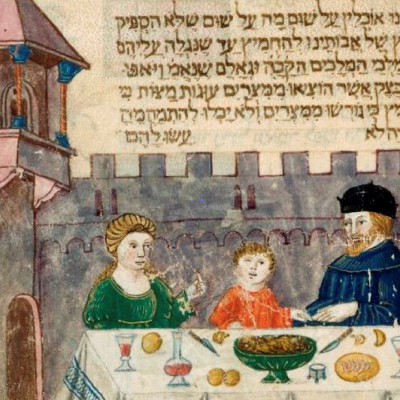 נו אוכלין על שום מה על שום שלא הספיק
של אבותינו להחמיץ עד שנגלה עליהם
מלכי המלכים הקבה וגאלם שנאמ ויאפו
בצק אשר הוציאו ממצרים עוגות מצות כי
מץ כי גורשו ממצרים ולא יכלו להתמהמה
לא עשו להם